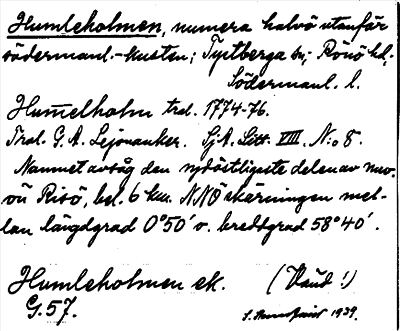 Humleholmen, numera halvö utanför
södermanl.-kusten; Tystberga sn, Rönö hd,
Södermanl. l.
Hum̅elholm trol. 1774-76.
Trol. G. A. Lejonanker. SjA. Litt. VIII. No 8.
Namnet avsåg den sydöstligaste delen av nuv.
ön Risö, bel. 6 km. NNÖ skärningen mel-
lan längdgrad 0°50' v. breddgrad 58°40'.
Humleholmen ek. (Vaud!)
G. 57. 1939.